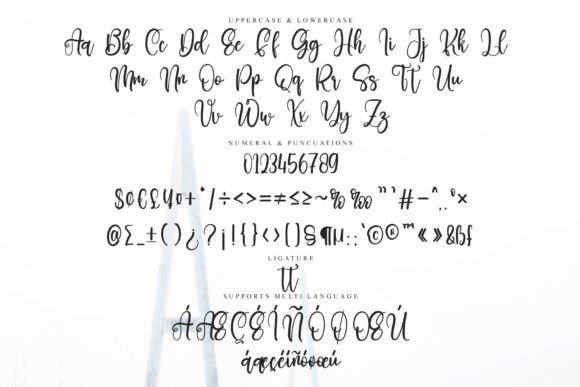 UPPERCASE & LOWERCASE
Aa Bb Cc Dd Ee Ff Gg Hh Ii Jj Kk Ll
Mm Nn Oo Pp Qq Rr Ss Tt Uu
Vv Ww Xx Yy Zz
NUMERAL & PUNCUATIONS
0123456789
$¢€£¥¤+*/÷<>=≠≤≥~%‰"'#-^,.°×
@Σ_±()¿?¡!{}‹›[]§¶µ:;`©®™«»&ßf
LIGATURE
tt
SUPPORTS MULTI LANGUAGE
ÁÆÇÉÍÑÓØŒÚ
áæçéíñóøœú